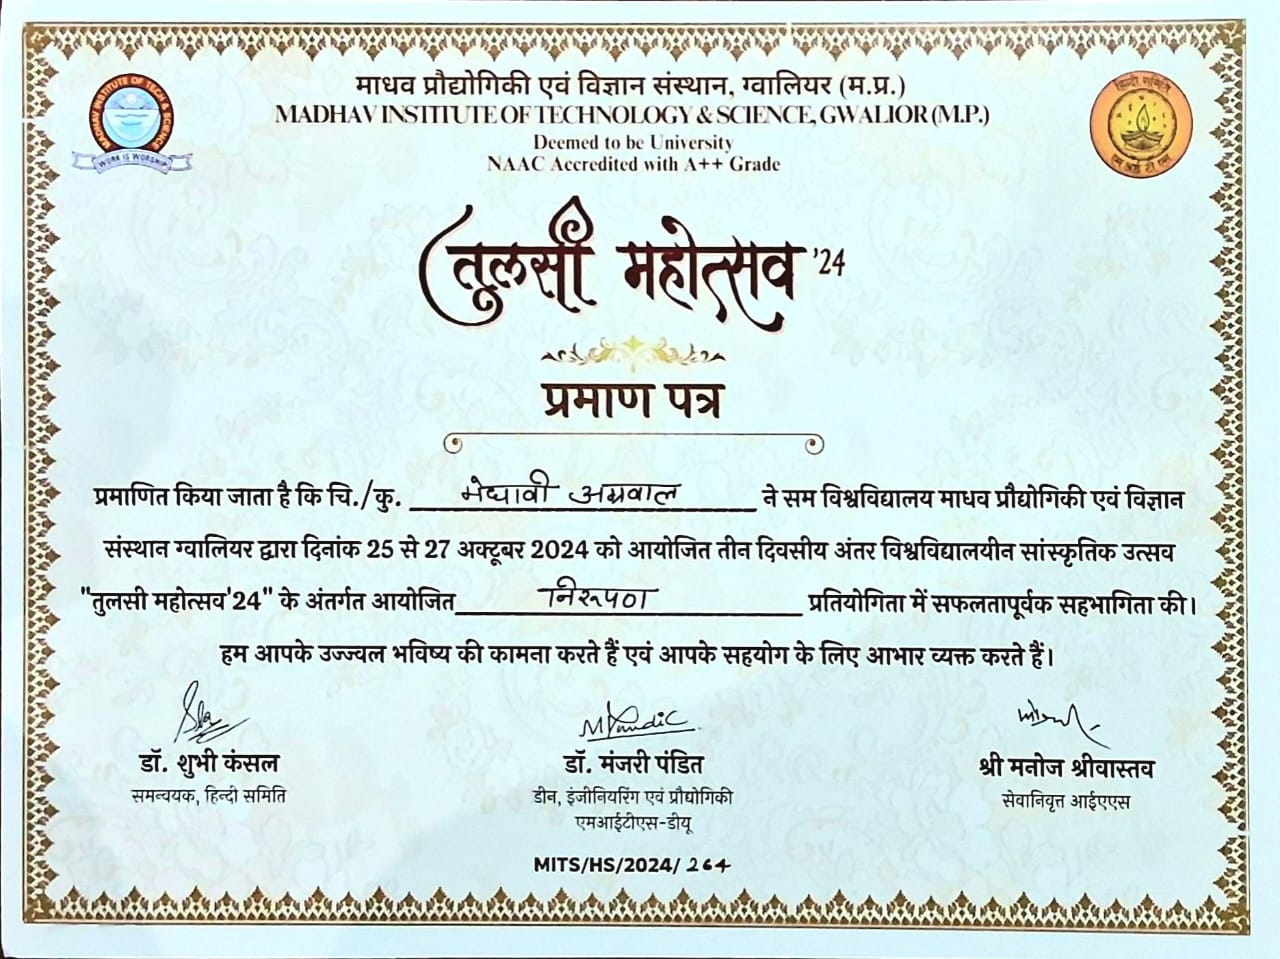 माधव प्रौद्योगिकी एवं विज्ञान संस्थान, ग्वालियर (म.प्र.)
MADHAV INSTITUTE OF TECHNOLOGY & SCIENCE, GWALIOR (M.P.)
Deemed to be University
NAAC Accredited with A++ Grade
MADHAV INSTITUTE OF TECH & SCIENCE
WORK IS WORSHIP
हिन्दी समिति
एम आई टी एस
तुलसी महोत्सव '24
प्रमाण पत्र
प्रमाणित किया जाता है कि चि./कु. मेघावी अग्रवाल ने सम विश्वविद्यालय माधव प्रौद्योगिकी एवं विज्ञान
संस्थान ग्वालियर द्वारा दिनांक 25 से 27 अक्टूबर 2024 को आयोजित तीन दिवसीय अंतर विश्वविद्यालयीन सांस्कृतिक उत्सव
"तुलसी महोत्सव'24" के अंतर्गत आयोजित निरूपण प्रतियोगिता में सफलतापूर्वक सहभागिता की।
हम आपके उज्ज्वल भविष्य की कामना करते हैं एवं आपके सहयोग के लिए आभार व्यक्त करते हैं।
MPandit
डॉ. शुभी कंसल
समन्वयक, हिन्दी समिति
डॉ. मंजरी पंडित
डीन, इंजीनियरिंग एवं प्रौद्योगिकी
एमआईटीएस-डीयू
श्री मनोज श्रीवास्तव
सेवानिवृत्त आईएएस
MITS/HS/2024/ 264